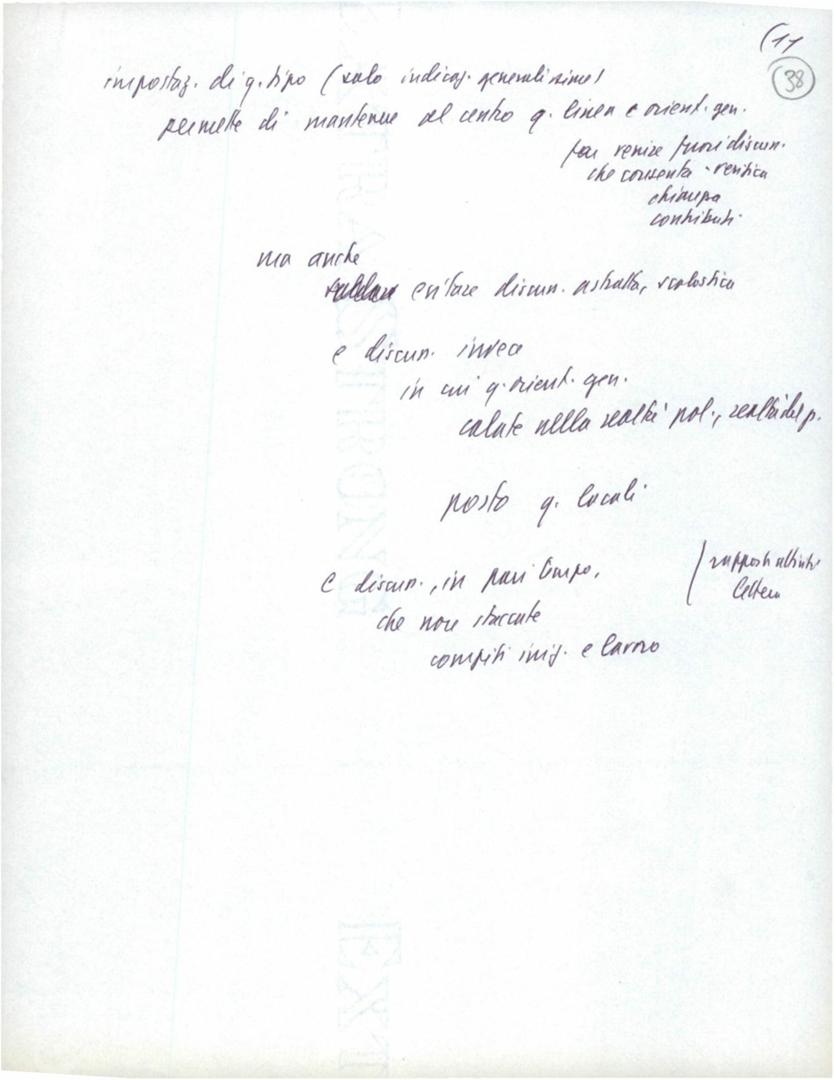 (11
38
impostaz. di q. tipo (solo indicaz. generalissime)
permette di mantenere al centro q. linea e orient. gen.
far venire fuori discus.
che consenta - verifica
contributi
ma anche
evitare discus. astratta, scolastica
e discus. invece
in cui q. orient. gen.
calate nella realtà pol., realtà del p.
posto q. locali
e discus., in pari tempo,
che non staccate
compiti iniz. e lavoro
lettera
EXTRA STRONG
EXT